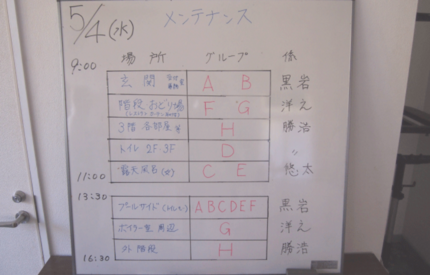 5/4(水) メンテナンス
場所 グループ 係
9:00
玄関 A B 黒岩
階段おどり場 F G 洋え
3階 各部屋 H 勝浩
トイレ 2F・3F D 〃
露天風呂 C E 悠太
11:00
13:30
プールサイド ABCDEF 黒岩
ボイラー室 周辺 G 洋え
外階段 H 勝浩
16:30